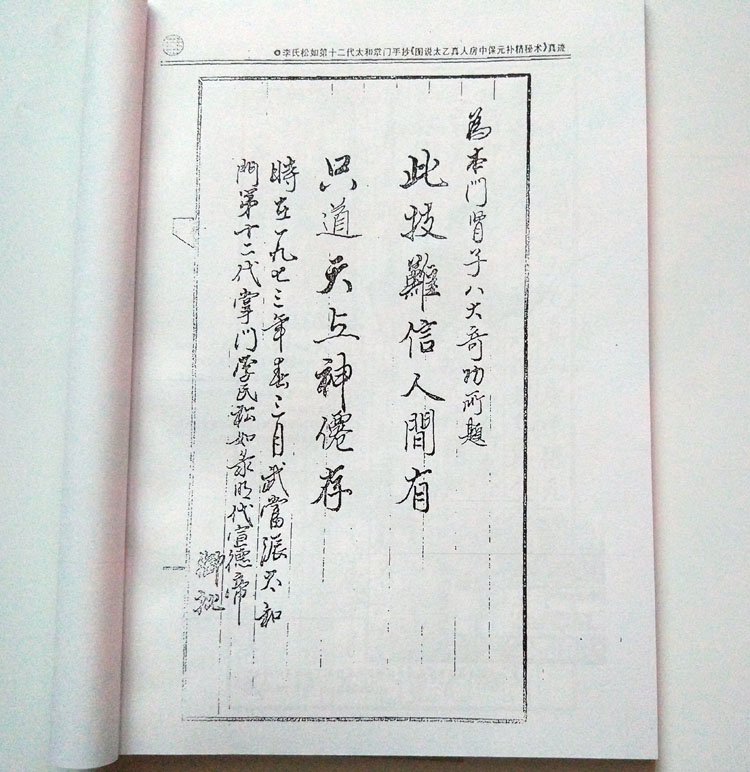 李氏松如第十二代太和掌门手抄《图说太乙真人房中保元补精秘术》真迹
為本门子八大奇功所題
此技難信人間有
只道天上神僊存
時在一九七三年春三月武當派太和
門第十二代掌门李氏松如录明代宣德帝
御批